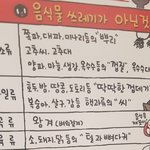 음식물 쓰레기가 아닌것
쪽파, 대파, 미나리등의 "뿌리"
고추씨, 고추대
마늘, 생강, 옥수수의 "껍질", 옥수수대
호두, 밤, 땅콩, 도토리등 "딱딱한 껍데기"
복숭아, 살구, 감등 핵과류의 "씨"
왕겨
소, 돼지, 닭등의 "털과 뼈다귀"